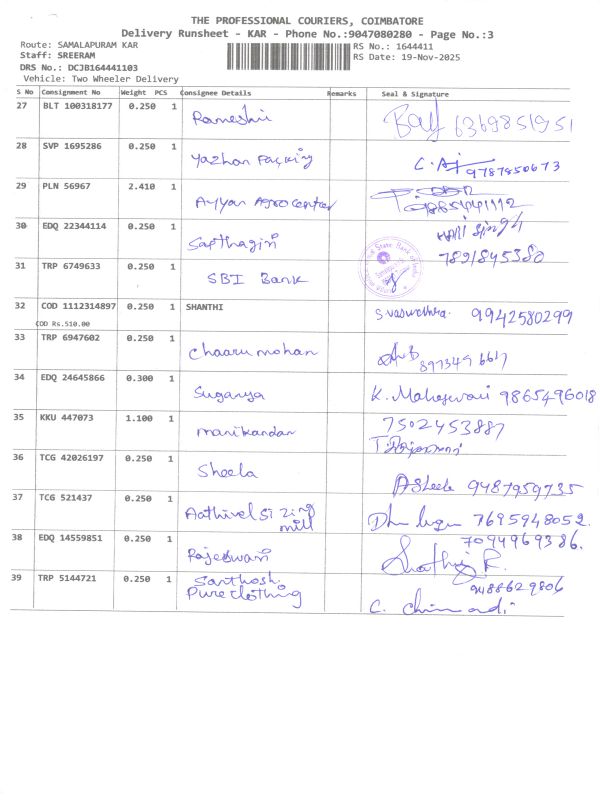 THE PROFESSIONAL COURIERS, COIMBATORE
Delivery Runsheet - KAR - Phone No.:9047080280 - Page No.:3
Route: SAMALAPURAM KAR
RS No.: 1644411
Staff: SREERAM
RS Date: 19-Nov-2025
DRS No.: DCJB164441103
Vehicle: Two Wheeler Delivery
S No Consignment No Weight PCS Consignee Details Remarks Seal & Signature
27 BLT 100318177 0.250 1 6369851951
28 SVP 1695286 0.250 1 Yazhan Packing 9787850673
29 PLN 56967 2.410 1 Ayyan Agro Centre
30 EDQ 22344114 0.250 1 Sapthagiri Hari Singh
7891845380
31 TRP 6749633 0.250 1 SBI Bank
32 COD 1112314897 0.250 1 SHANTHI 9942580299
COD Rs.510.00
33 TRP 6947602 0.250 1 Chaaru mohan
34 EDQ 24645866 0.300 1 Suganya K. Maheswari 9865496018
35 KKU 447073 1.100 1 manikandan 7502453887
36 TCG 42026197 0.250 1 Sheela A Sheela 9487959735
37 TCG 521437 0.250 1 Aathivel Sizing mill 7695948052.
38 EDQ 14559851 0.250 1 Rajeswari 7094969386.
39 TRP 5144721 0.250 1 Santhosh Pure clothing 9488629806